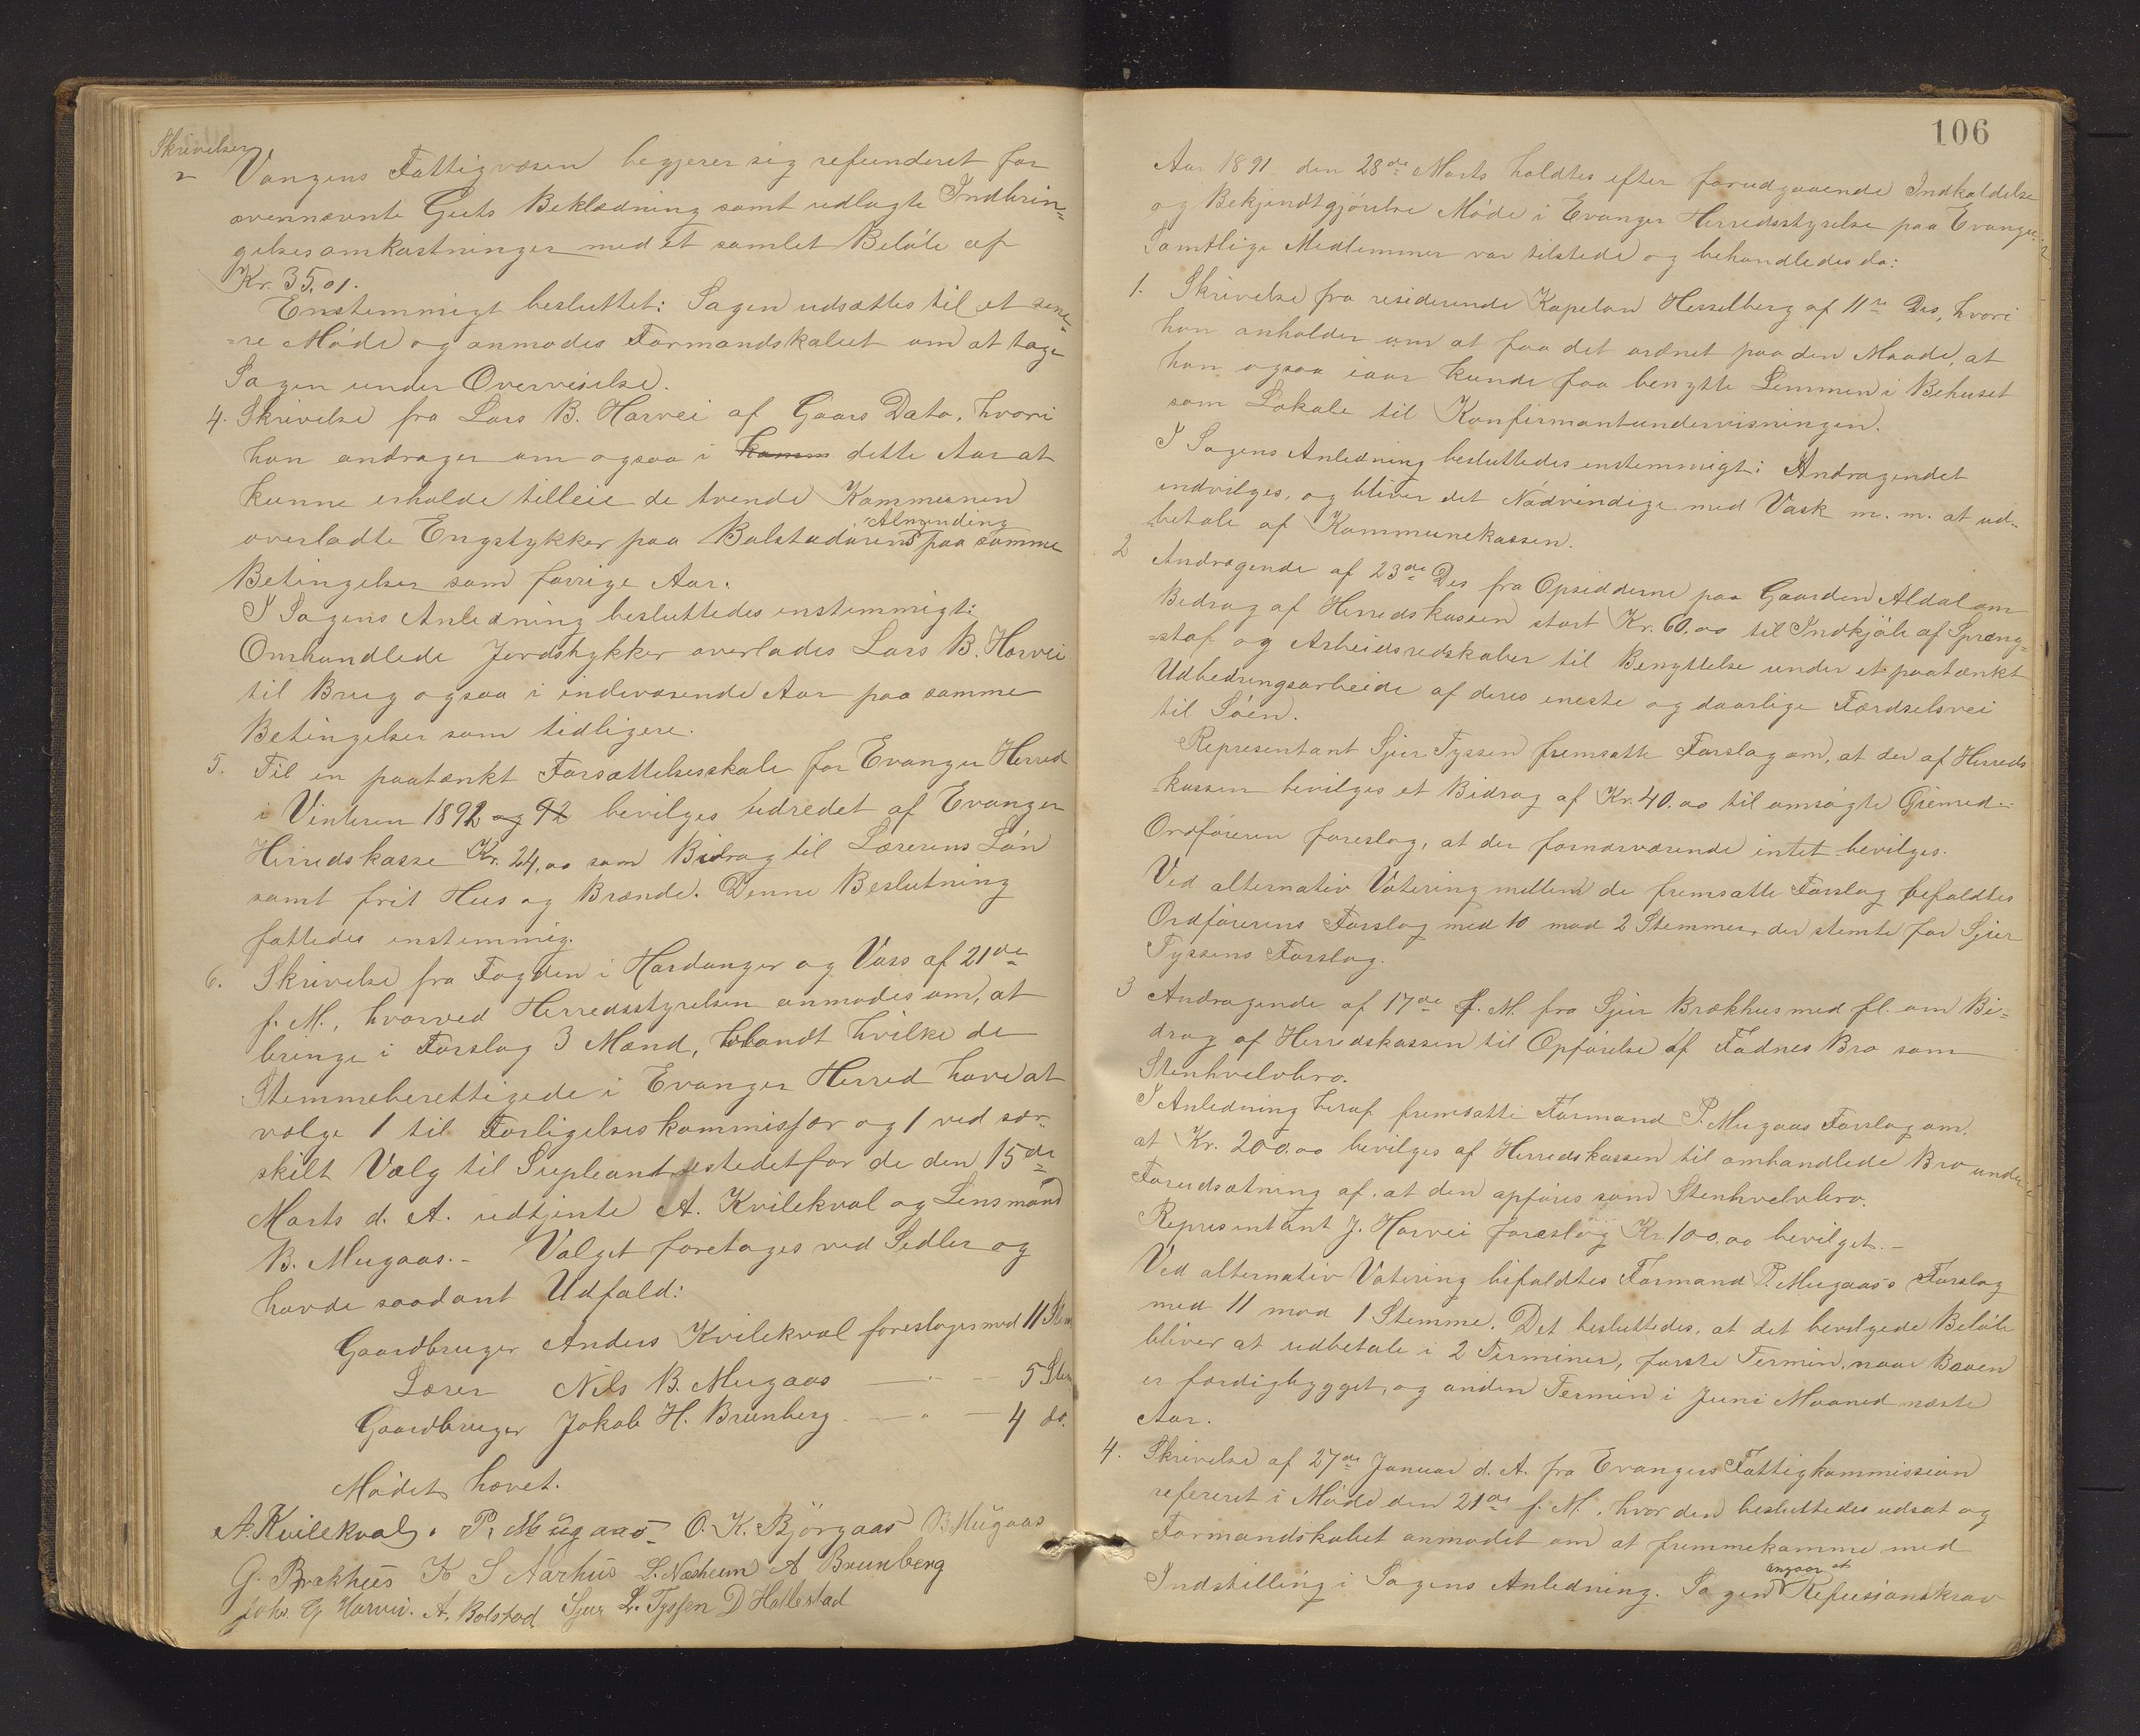 Skrivelser,
Vangens Fattigvæsen begjerer sig refunderet for
ovennævnte Guts Beklædning samt udlagte Indbrin-
gelsesomkostninger med et samlet Beløb af
Kr. 35,01.
Enstemmigt besluttet: Sagen udsættes til et sene-
=re Møde og anmodes Formandskabet om at tage
Sagen under Overveielse.
4. Skrivelse fra Lars B. Horvei af Gaars Dato, hvori
han andrager om ogsaa i dette Aar at
kunne erholde tilleie de tvende Kommunen
Almending
overladte Engstykker paa Bolstadørens paa samme
Betingelser som forrige Aar.
I Sagens Anledning besluttedes enstemmigt:
Omhandlede Jordstykker overlades Lars B. Horvei
til Brug ogsaa i indeværende Aar paa samme
Betingelser som tidligere.
5. Til en paatænkt Forsættelsesskole for Evanger Herred
i Vinteren 1891 og 92 bevilges udredet af Evanger
Herredskasse Kr. 24,00 som Bidrag til Lærerens Løn
samt frit Hus og Brænde. Denne Beslutning
fattedes enstemmig.
6. Skrivelse fra Fogden i Hardanger og Voss af 21de
f. M., hvorved Herredsstyrelsen anmodes om, at
bringe i Forslag 3 Mænd, blandt hvilke de
Stemmeberettigede i Evanger Herred have at
vælge 1 til Forligelseskommisfær og 1 ved sær-
skilt Valg til Supleant istedetfor de den 15de
Marts d. A. udtjente A. Kvilekval og Lensmand
B. Mugaas.- Valget foretages ved Sedler og
havde saadant Udfald:
Gaardbruger Anders Kvilekval foreslages med 11 Stem
Lærer Nils B. Mugaas — " — 5 Stem
Gaardbruger Jakob H. Brunberg — " — 4 do.
Mødet hævet.
A. Kvilekval. P. Mugaas O. K. Björgaas B. Mugaas
G. Brækhus K S Aarhus L. Næsheim A Brunberg
Johs. G Horvei. A. Bolstad Sjur L. Tyssen D Hallestad
106
Aar 1891 den 28de Marts holdtes efter forudgaaende Indkaldelse
og Bekjendtgjørelse Møde i Evanger Herredsstyrelse paa Evanger.
Samtlige Medlemmer var tilstede og behandledes da:
1. Skrivelse fra residerende Kapelan Hesselberg af 11te Ds, hvori
han anholder om at faa det ordnet paa den Maade, at
han ogsaa iaar kunde faa benytte Lemmen i Behuset
som Lokale til Konfirmantundervisningen.
I Sagens Anledning besluttedes enstemmigt: Andragendet
indvilges, og bliver det Nødvendige med Vask m. m. at ud-
betale af Kommunekassen.
2 Andragende af 23de Ds fra Opsidderne paa Gaarden Aldal om
Bidrag af Herredskassen stort Kr. 60.00 til Indkjøb af Spræng-
=stof og Arbeidsredskaber til Benyttelse under et paatænkt
Udbedringsarbeide af deres eneste og daarlige Færdselsvei
til Søen.
Repræsentant Sjur Tyssen fremsatte Forslag om, at der af Herreds
kassen bevilges et Bidrag af Kr. 40.00 til omsøgte Øiemed.
Ordføreren foreslog, at der fornærværende intet bevilges.
Ved alternativ Votering mellem de fremsatte Forslag befaldtes
Ordførerens Forslag med 10 mod 2 Stemmer, der stemte for Sjur
Tyssens Forslag.
3 Andragende af 17de f. M. fra Sjur Brækhus med fl. om Bi-
drag af Herredskassen til Opførelse af Fadnes Bro som
Stenhvelvbro.
I Anledning heraf fremsatte Formand P. Mugaas Forslag om,
at Kr. 200.00 bevilges af Herredskassen til omhandlede Bro under
Forudsætning af, at den opføres som Stenhvelvbro.
Representant J. Horvei foreslog Kr 100.00 bevilget.-
Ved alternativ Votering bifaldtes Formand P. Mugaas's Forslag
med 11 mod 1 Stemme. Det besluttedes, at det bevilgede Beløb
bliver at udbetale i 2 Terminer, første Termin, naar Broen
er færdigbygget, og anden Termin i Juni Maaned næste
Aar.
4. Skrivelse af 27de Januar d. A. fra Evangers Fattigkommission
refereret i Møde den 21de f. M., hvor den besluttedes udsat og
Formandskabet anmodet om at fremmekomme med
angaar et
Indstilling i Sagens Anledning. Sagen Refusionskrav